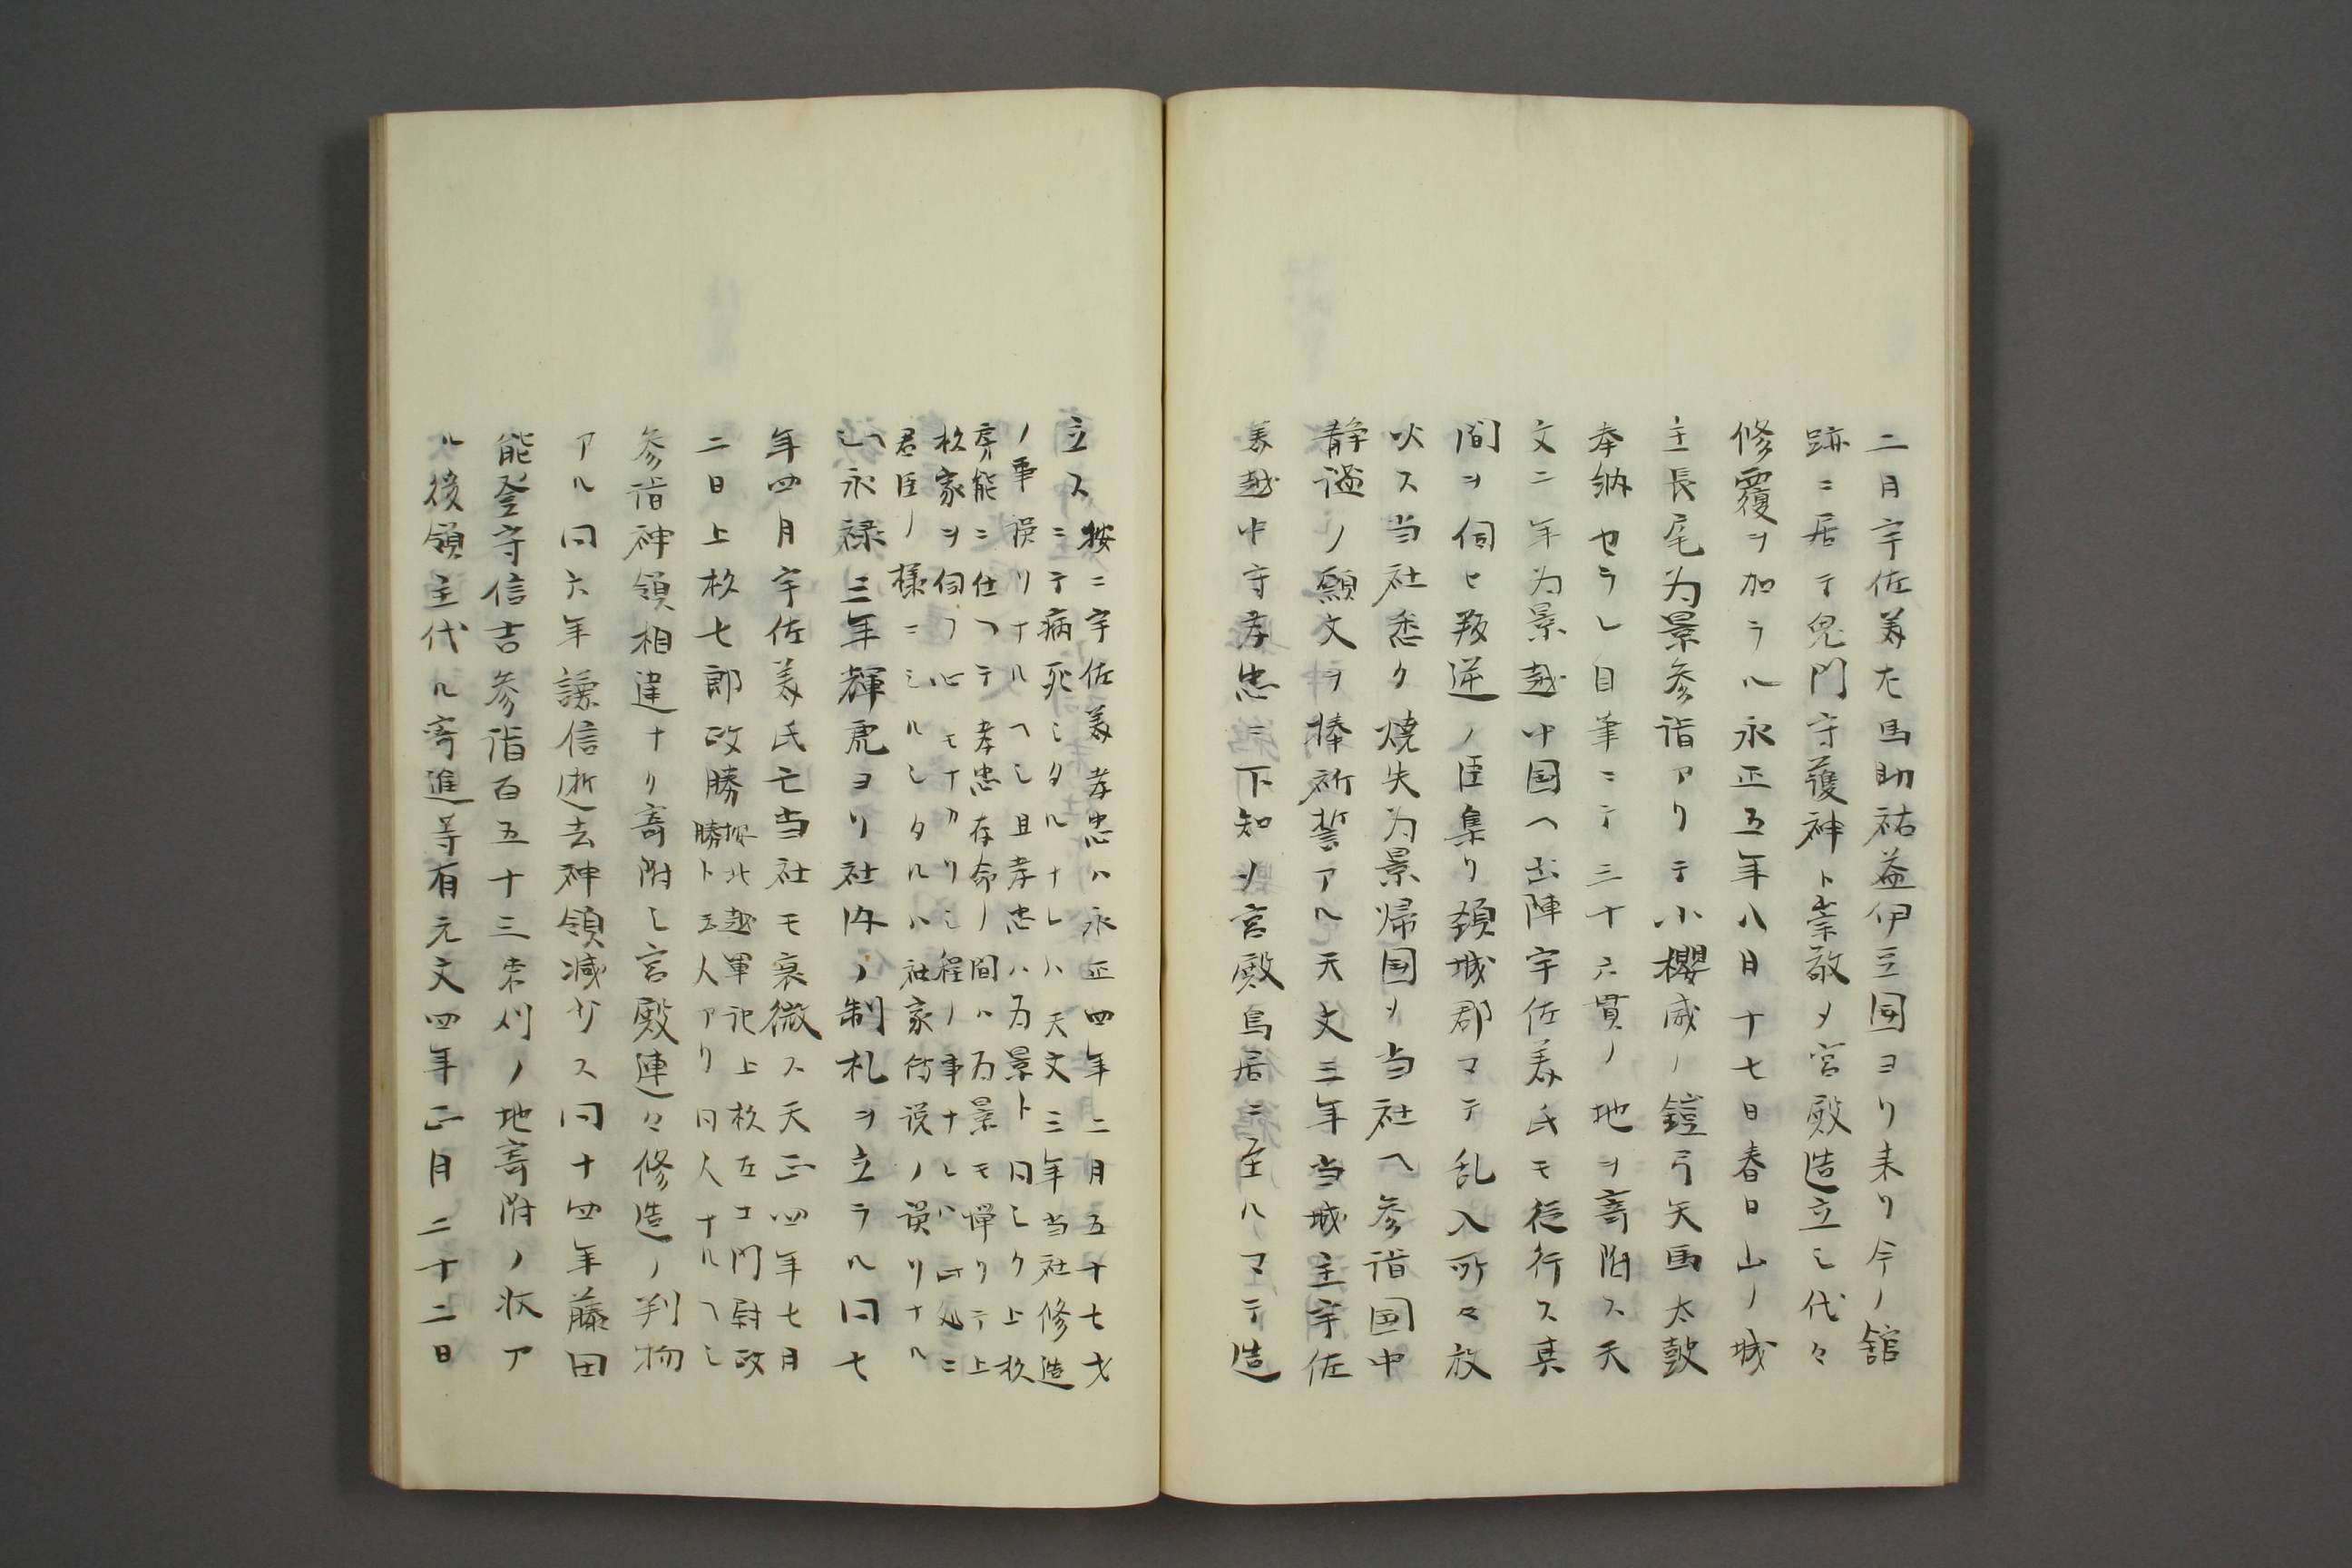 二月宇佐美左馬助祐益伊豆国ヨリ来リ今ノ舘
跡ニ居テ鬼門守護神ト崇敬メ宮殿造立シ代々
修覆ヲ加ラル永正五年八月十七日春日山ノ城
主長尾为景参詣アリテ小櫻威ノ鎧弓矢馬太鼓
奉納セラレ自筆ニテ三十六貫ノ地ヲ寄附ス天
文二年为景越中国ヘ出陣宇佐美氏モ従行ス其
間ヲ伺ヒ叛逆ノ臣集リ頚城郡マテ乱入所々放
火ス当社悉ク焼失为景帰国メ当社ヘ参詣国中
静謐ノ願文ヲ捧祈誓アル天文三年当城主宇佐
美越中守孝忠ニ下知メ宮殿鳥居ニ至ルマテ造
立ス 按ニ宇佐美孝忠ハ永正四年二月五十七才
ニテ病死シタルナレハ天文三年当社修造
ノ事誤リナルヘシ且孝忠ハ为景ト同シク上杉
房能ニ仕ヘテ孝忠存命ノ間ハ为景モ憚リテ上
杉家ヲ伺フ心モナカリシ程ノ事ナレハ此処ニ
君臣ノ様ニシルシタルハ社家傳説ノ誤リナル
ヘシ永禄三年輝虎ヨリ社内ノ制札ヲ立ラル同七
年四月宇佐美氏亡当社モ衰微ス天正四年七月
二日上杦七郎政勝 按北越軍記上杦左エ門尉政
勝ト云人アリ同人ナルヘシ
参詣神領相違ナリ寄附シ宮殿連々修造ノ判物
アル同六年謙信逝去神領减少ス同十四年藤田
能登守信吉参詣百五十三束刈ノ地寄附ノ状ア
ル後領主代ル寄進等有元文四年正月二十二日